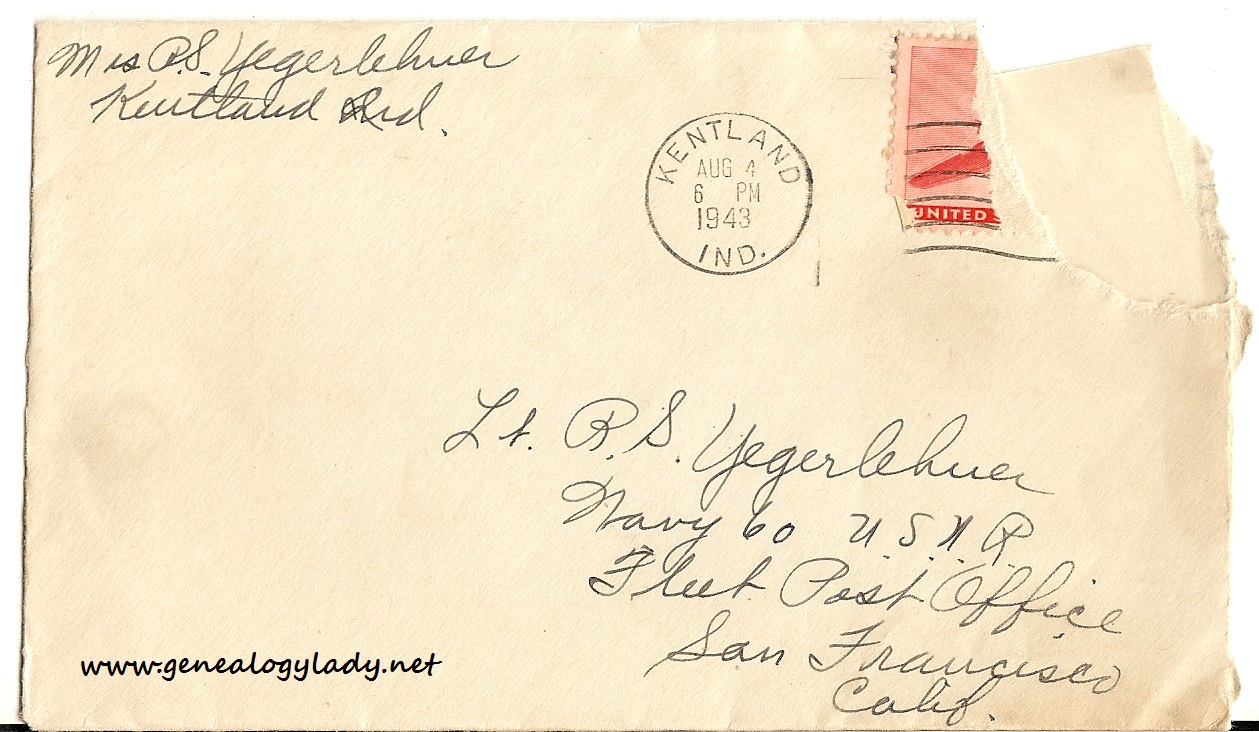 Mrs R.S. Yegerlehner
Kentland Ind.
KENTLAND
AUG 4
6 PM
1943
IND.
UNITED
Lt. R.S. Yegerlehner
Navy 60 U.S.N.R.
Fleet Post Office
San Francisco
Calif.
www.genealogylady.net